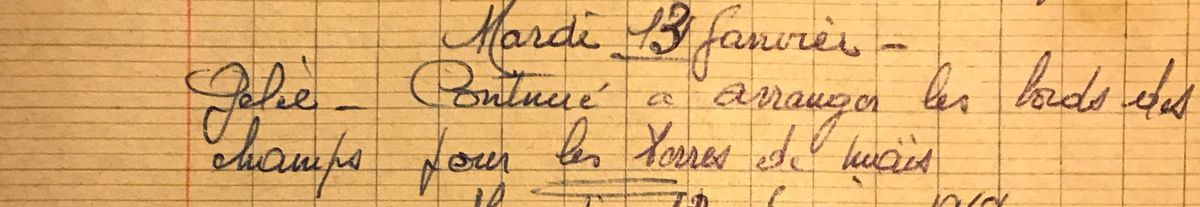 Mardi 13 Janvier -
Gelée - Continué a arranger les bords des
champs pour les terres de maïs